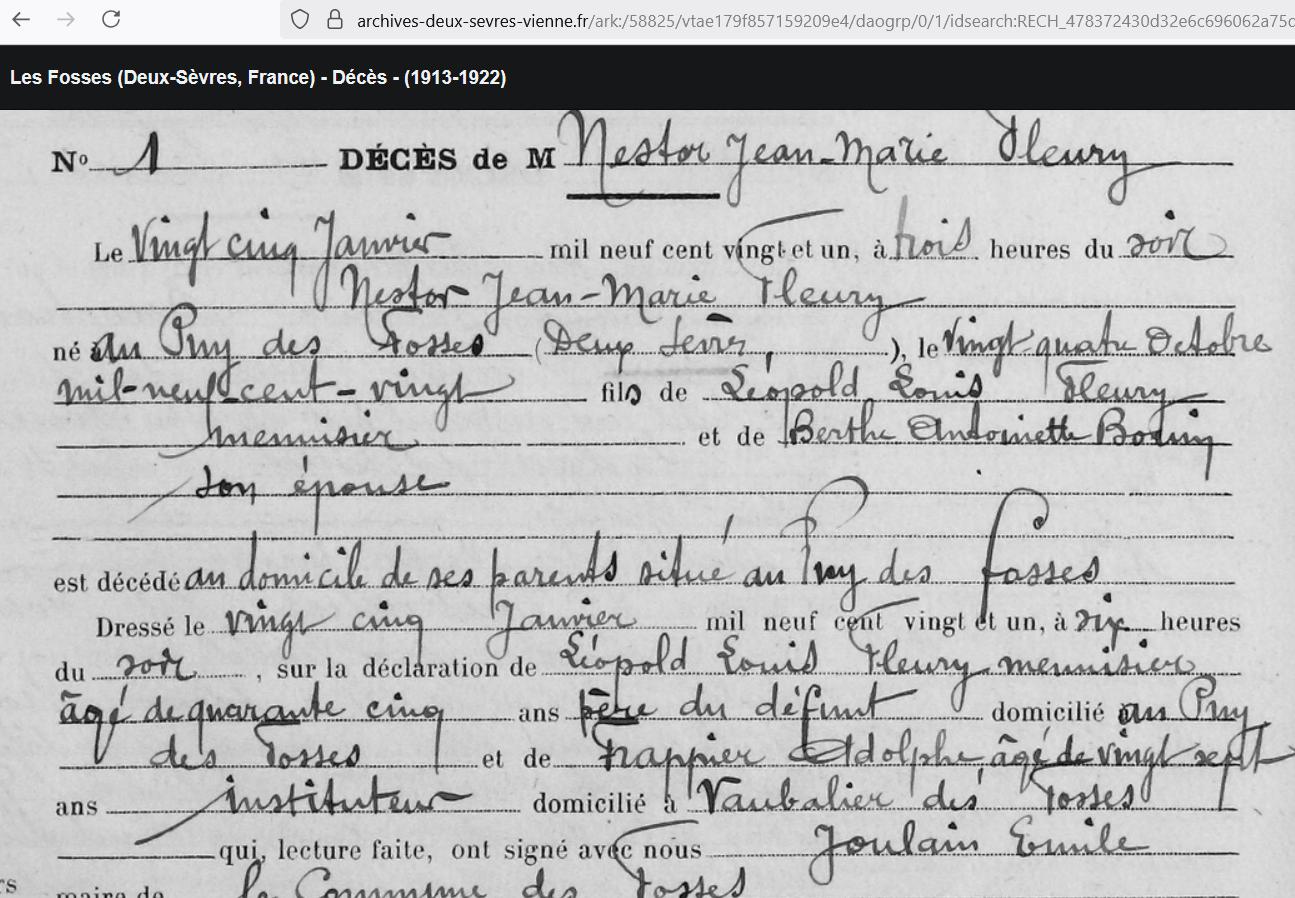 archives-deux-sevres-vienne.fr/ark:/58825/vtae179f857159209e4/daogrp/0/1/idsearch:RECH_478372430d32e6c696062a75c
Les Fosses (Deux-Sèvres, France) - Décès - (1913-1922)
Nº 1 DÉCÈS de M Nestor Jean-Marie Fleury
Le Vingt cinq Janvier mil neuf cent vingt et un, à trois heures du soir
Nestor Jean-Marie Fleury
né au Puy des Fosses (Deux Sèvres), le Vingt quatre Octobre
mil-neuf-cent-vingt fils de Léopold Louis Fleury
menuisier et de Berthe Antoinette
son épouse
est décédé au domicile de ses parents situé au Puy des fosses
Dressé le vingt cinq Janvier mil neuf cent vingt et un, à six heures
du soir, sur la déclaration de Léopold Louis Fleury menuisier
âgé de quarante cinq ans père du défunt domicilié au Puy
des Fosses et de Frappier Adolphe âgé de vingt sept
ans instituteur domicilié à Vaubalier des Fosses
qui, lecture faite, ont signé avec nous Joulain Emile
maire de la Commune des Fosses